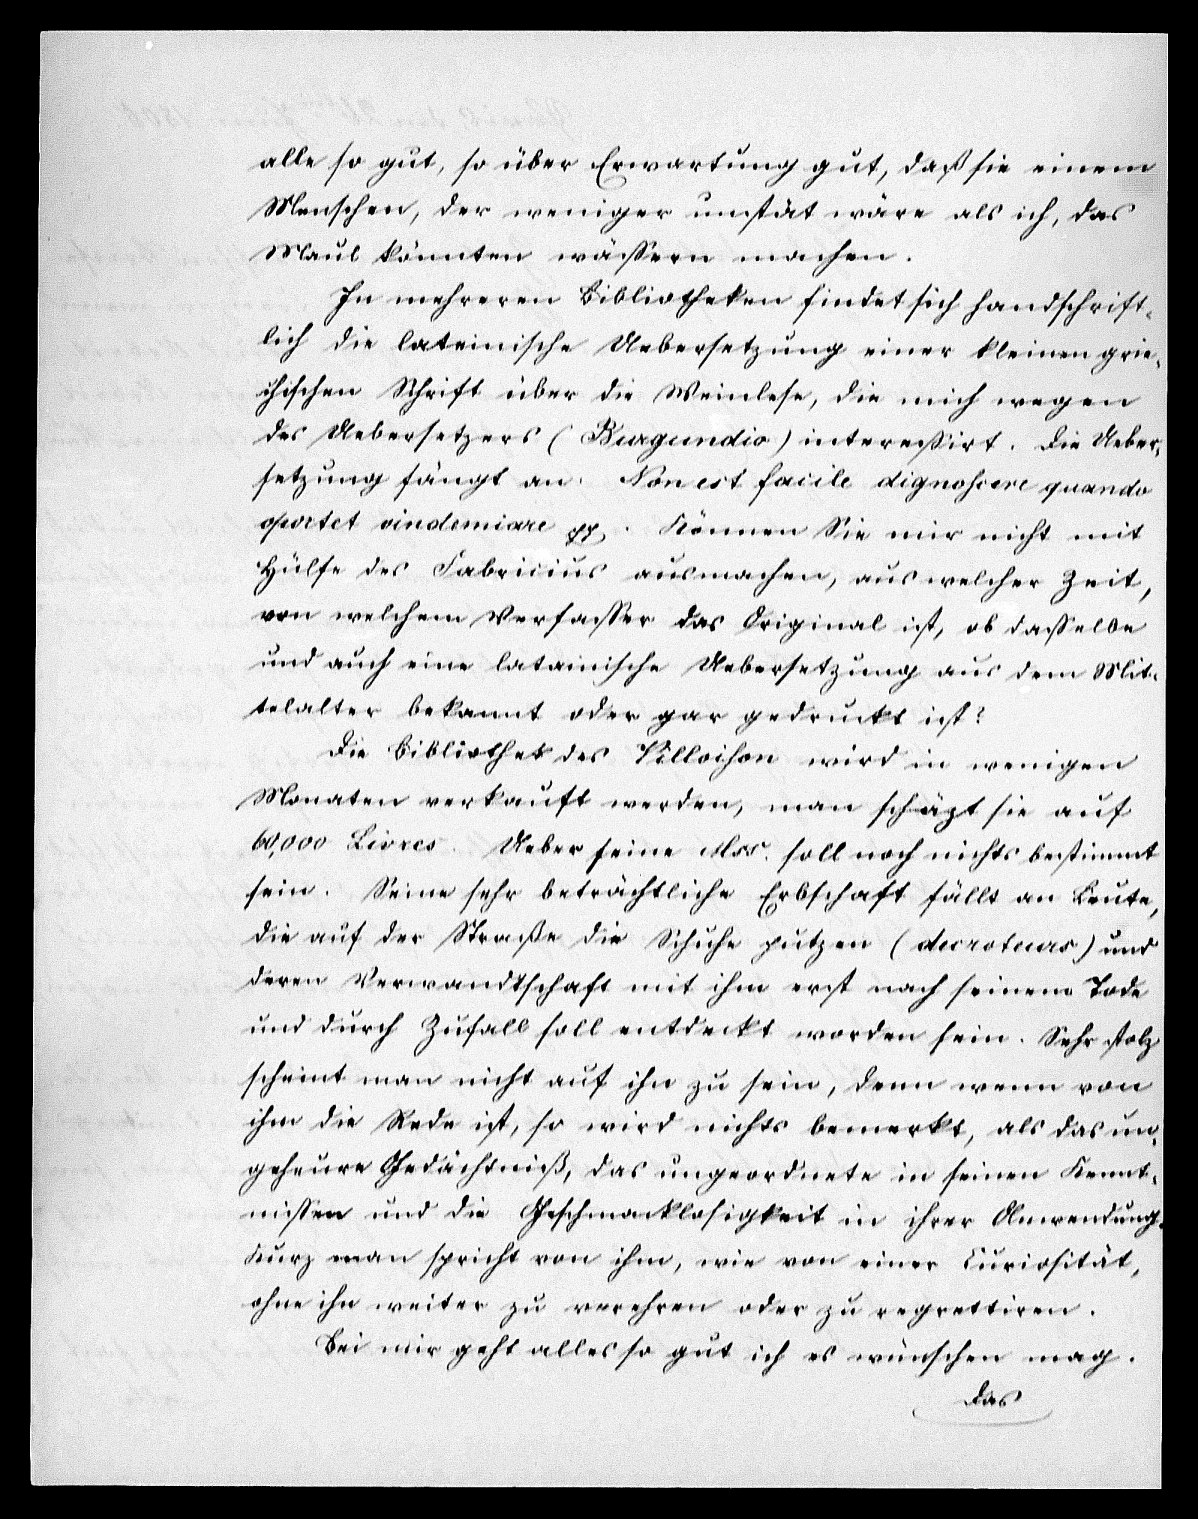 alle so gut, so über Erwartung gut, daß sie einem
Menschen, der weniger unstät wäre als ich, das
Maul könnten wässern machen.
In mehreren Bibliotheken findet sich handschrift-
lich die lateinische Uebersetzung einer kleinen grie-
chischen Schrift über die Weinlese, die mich wegen
des Uebersetzers (Burgundio) interessirt. Die Ueber-
setzung fängt an. Non est facile dignoscere quando
oportet vindemiare pp. Können Sie mir nicht mit
Hülfe des Fabricius ausmachen, aus welcher Zeit,
von welchem Verfasser das Original ist, ob dasselbe
und auch eine lateinische Uebersetzung aus dem Mit-
telalter bekannt oder gar gedruckt ist?
Die Bibliothek des Villoison wird in wenigen
Monaten verkauft werden, man schäzt sie auf
60,000 Livres. Ueber seine Mss. soll noch nichts bestimmt
sein. Seine sehr beträchtliche Erbschaft fällt an Leute,
die auf der Straße die Schuhe putzen (decroteurs) und
deren Verwandtschaft mit ihm erst nach seinem Tode
und durch Zufall soll entdeckt worden sein. Sehr stolz
scheint man nicht auf ihn zu sein, denn wenn von
ihm die Rede ist, so wird nichts bemerkt, als das un-
geheure Gedächtniß, das ungeordnete in seinen Kennt-
nissen und die Geschmacklosigkeit in ihrer Anwendung.
Kurz man spricht von ihm, wie von einer Curiosität,
ohne ihn weiter zu verehren oder zu regrettiren.
Bei mir geht alles so gut ich es wünschen mag.
Das